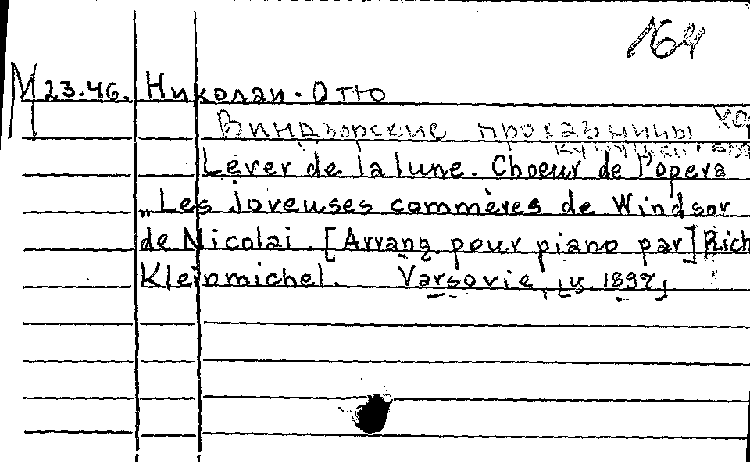 164
М 23.46. Николаи. Отто
Виндзорские проказницы
Lever de la lune. Choeur de l'opera
„Les joyeuses commères de Windsor
de Nicolai. [Arrang pour piano par] Rich
Kleinmichel. Varsovie,